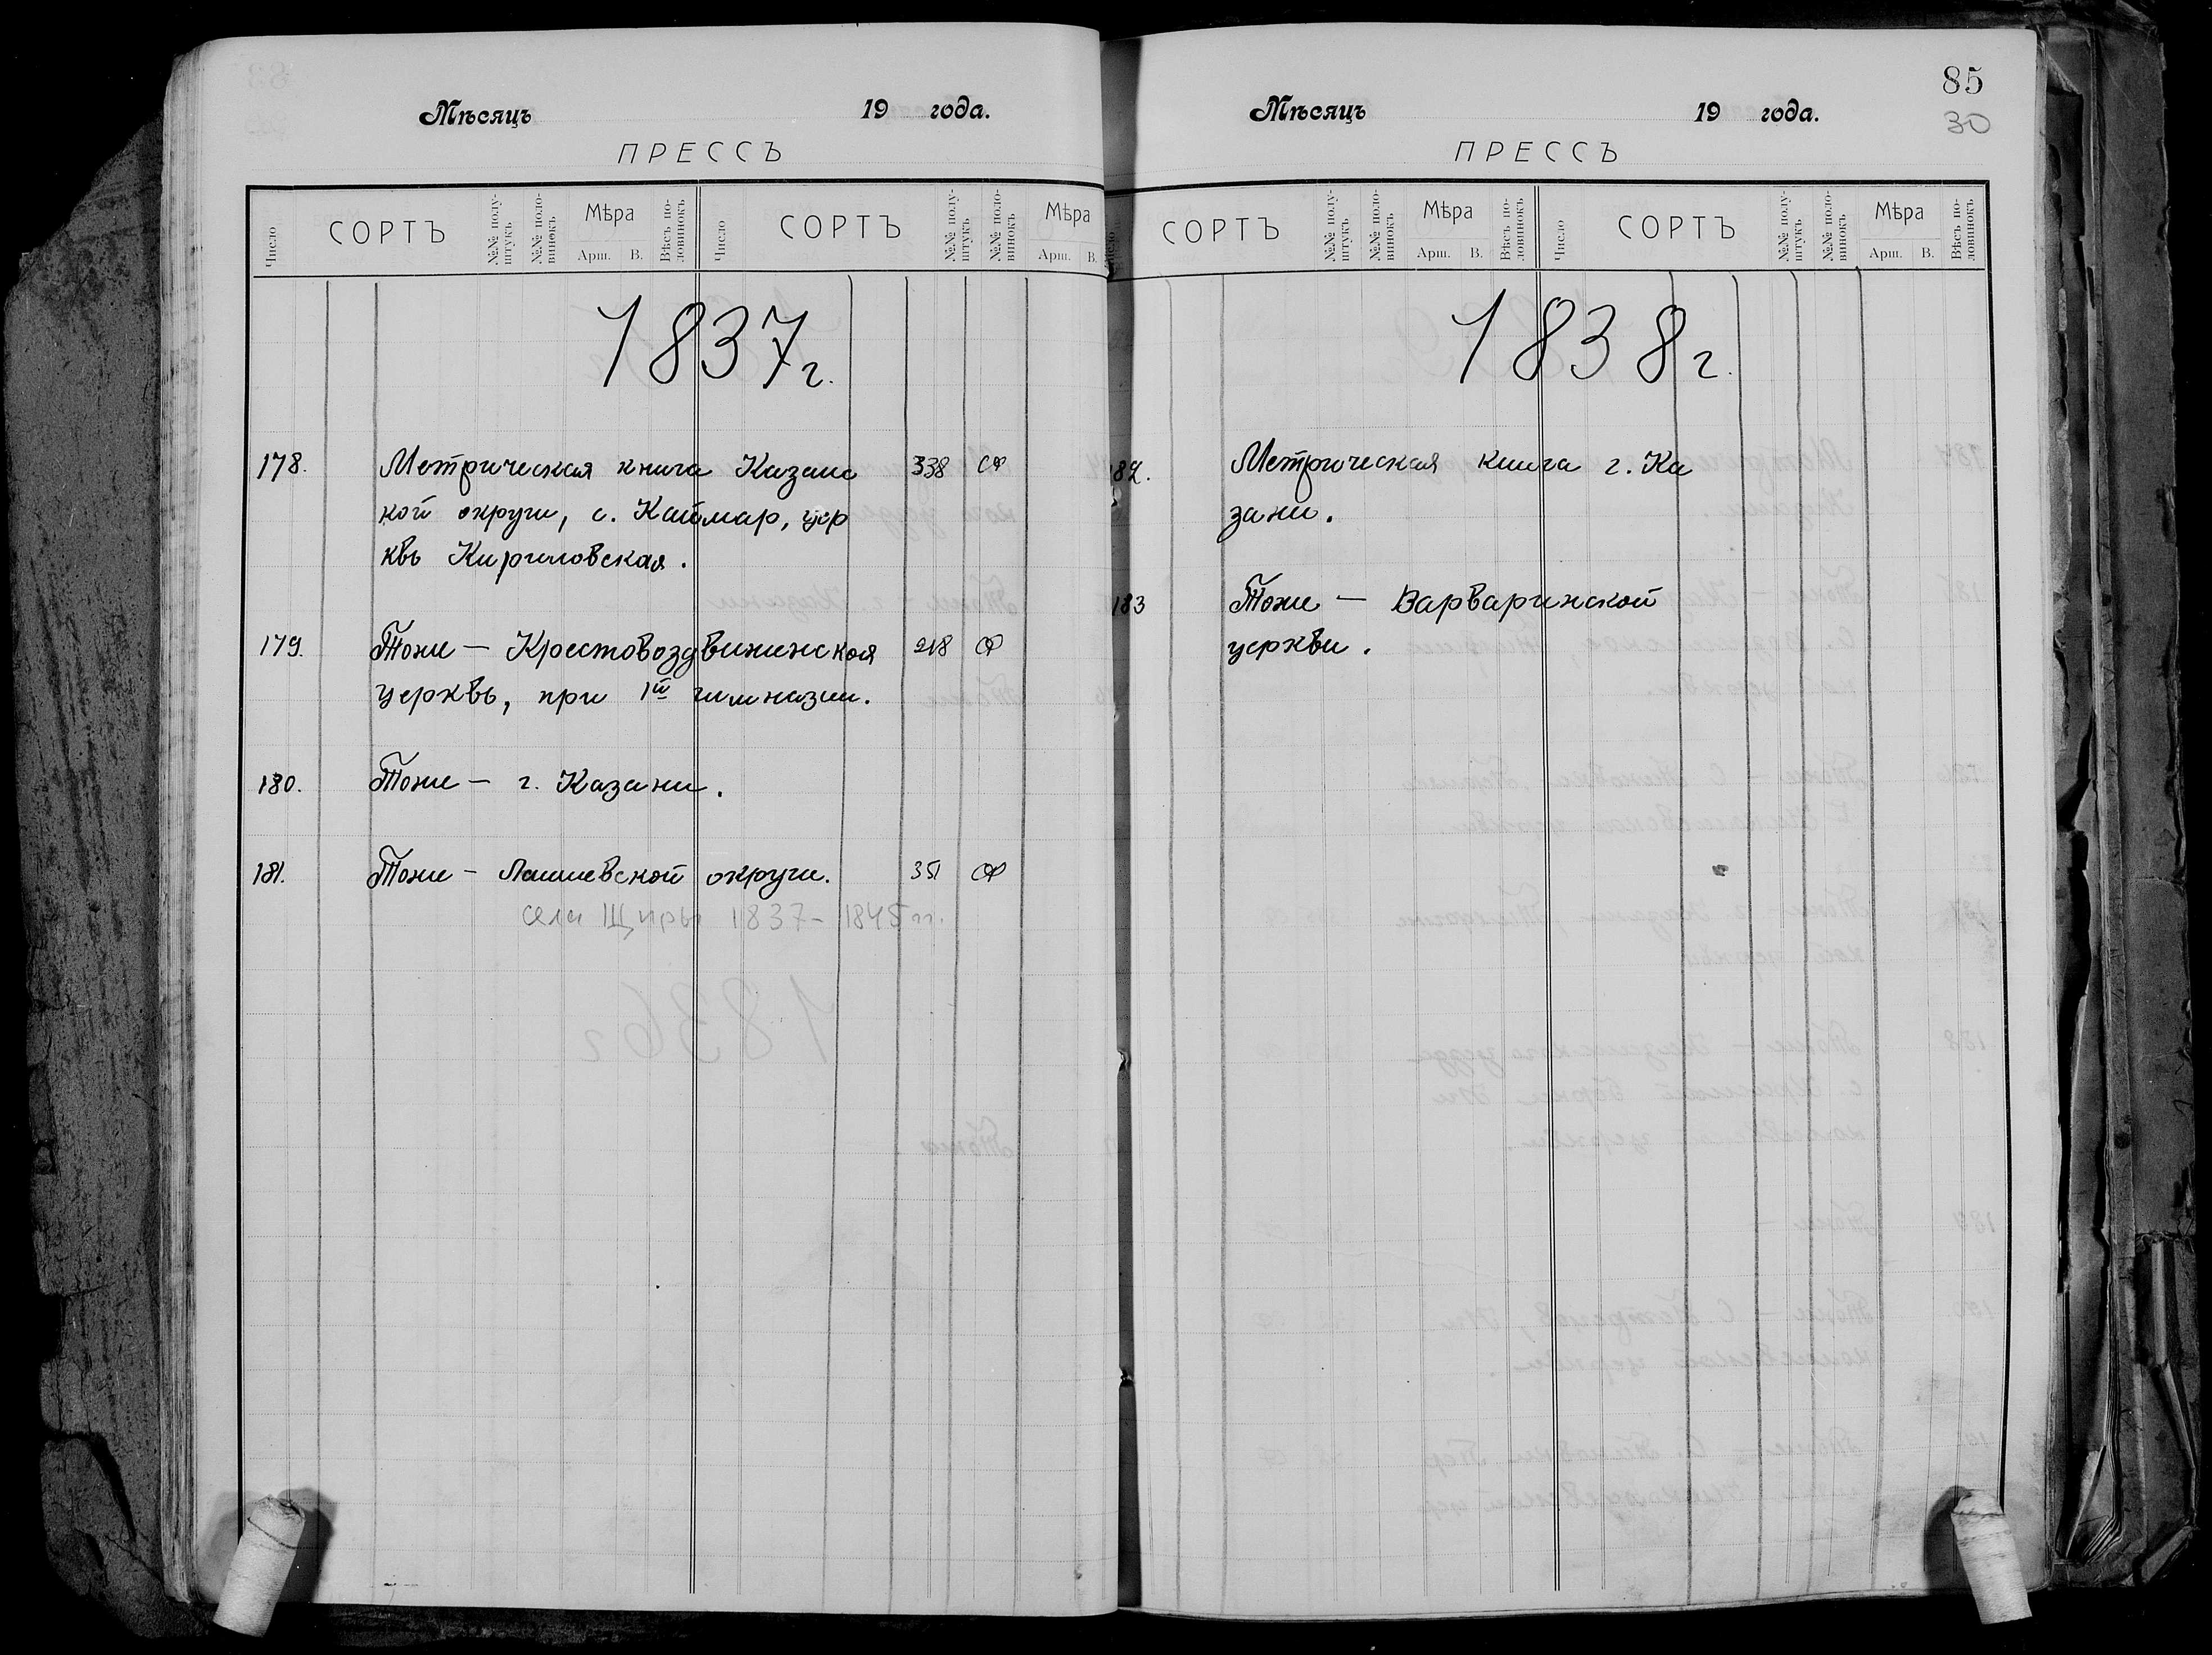 Мѣсяцъ 19 года.
ПРЕССЪ
Число СОРТЪ №№ полуштукъ №№ половинокъ Мѣра Арш. В. Вѣсъ половинокъ Число СОРТЪ №№ полуштукъ №№ половинокъ Мѣра Арш. В.
1837г.
178. Метрическая книга Казанс 338
кой округи, с. Каймар, цер
квь Кирилловская.
179. Тоже — Крестовоздвиженская 218
церквь, при 1й гимназии.
180. Тоже — г. Казани.
181. Тоже — Лаишевской округи. 351
села Щиры 1837-1845 гг.
85
30
Мѣсяцъ 19 года.
ПРЕССЪ
Число СОРТЪ №№ полуштукъ №№ половинокъ Мѣра Арш. В. Вѣсъ половинокъ Число СОРТЪ №№ полуштукъ №№ половинокъ Мѣра Арш. В. Вѣсъ половинокъ
1838г.
182. Метрическая книга г. Ка
зани.
183 Тоже — Варваринской
церкви.